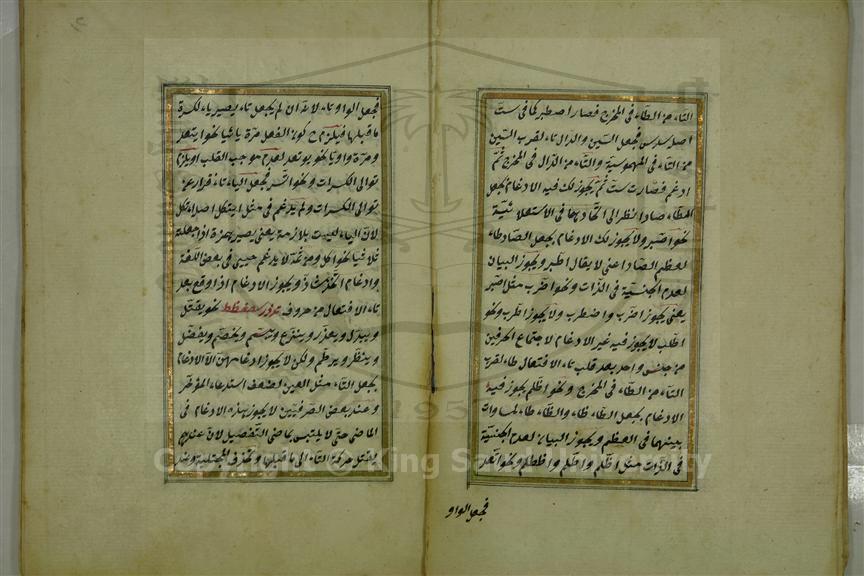 التاء من الطاء في المخرج فصار اصطبر كما في ست
اصله سدس فجعل السين والدال تاء لقرب السين
من التاء في المهموسية والتاء من الدال في المخرج ثم
ادغم فصارت ست ثم يجوز لك فيه الادغام بجعل
الطاء صادا نظرا الى اتحادهما في الاستعلائية
نحو اصبر ولا يجوز لك الادغام بجعل الصاد طاء
لعظم الصاد اعنى لا يقال اطبر ويجوز البيان
لعدم الجنسية في الذات ونحو اضرب مثل اصبر
يعنى يجوز اضرب واضطرب ولا يجوز اطرب ونحو
اطلب لا يجوز فيه غير الادغام لاجتماع الحرفين
من جنس واحد بعد قلب تاء الافتعال طاء لقرب
التاء من الطاء في المخرج ونحو اظلم يجوز فيه
الادغام بجعل الطاء ظاء والظاء طاء لمساوات
بينهما في العظم ويجوز البيان لعدم الجنسية
في الذات مثل اظلم واطلم واظطلم ونحو اتعد
فجعل الواو
فجعل الواو تاء لانه ان لم يجعل تاء يصير ياء لكسرة
ما قبلها فيلزم ح كون الفعل مرة يائيا نحو ايتعد
ومرة واويا نحو يوتعد لعدم موجب القلب او يلزم
توالى الكسرات ونحو اتسر فجعل الياء تاء فرارا عن
توالى الكسرات ولم يدغم في مثل ايتكل اصله ائتكل
لان الياء ليست بلازمة يعنى يصير همزة اذا جعلته
ثلاثيا نحو اكل ومن ثمة لا يدغم حيى في بعض اللغة
وادغام اتخذ شاذ ويجوز الادغام اذا وقع بعد
تاء الافتعال من حروف تدذزسصضطظ نحو يقتل
ويبدل ويعذر وينزع ويبسم ويخصم ويفضل
وينظر ويبطم ولكن لا يجوز ادغامهن الا الادغام
بجعل التاء مثل العين لضعف استدعاء المؤخر
وعند بعض الصرفيين لا يجوز هذا الادغام في
الماضى حتى لا يلتبس بماضى التفعيل لان عندهم
ينتقل حركة التاء الى ما قبلها ويحذف المجتلبة وعند
Copyright © King Saud University
1957